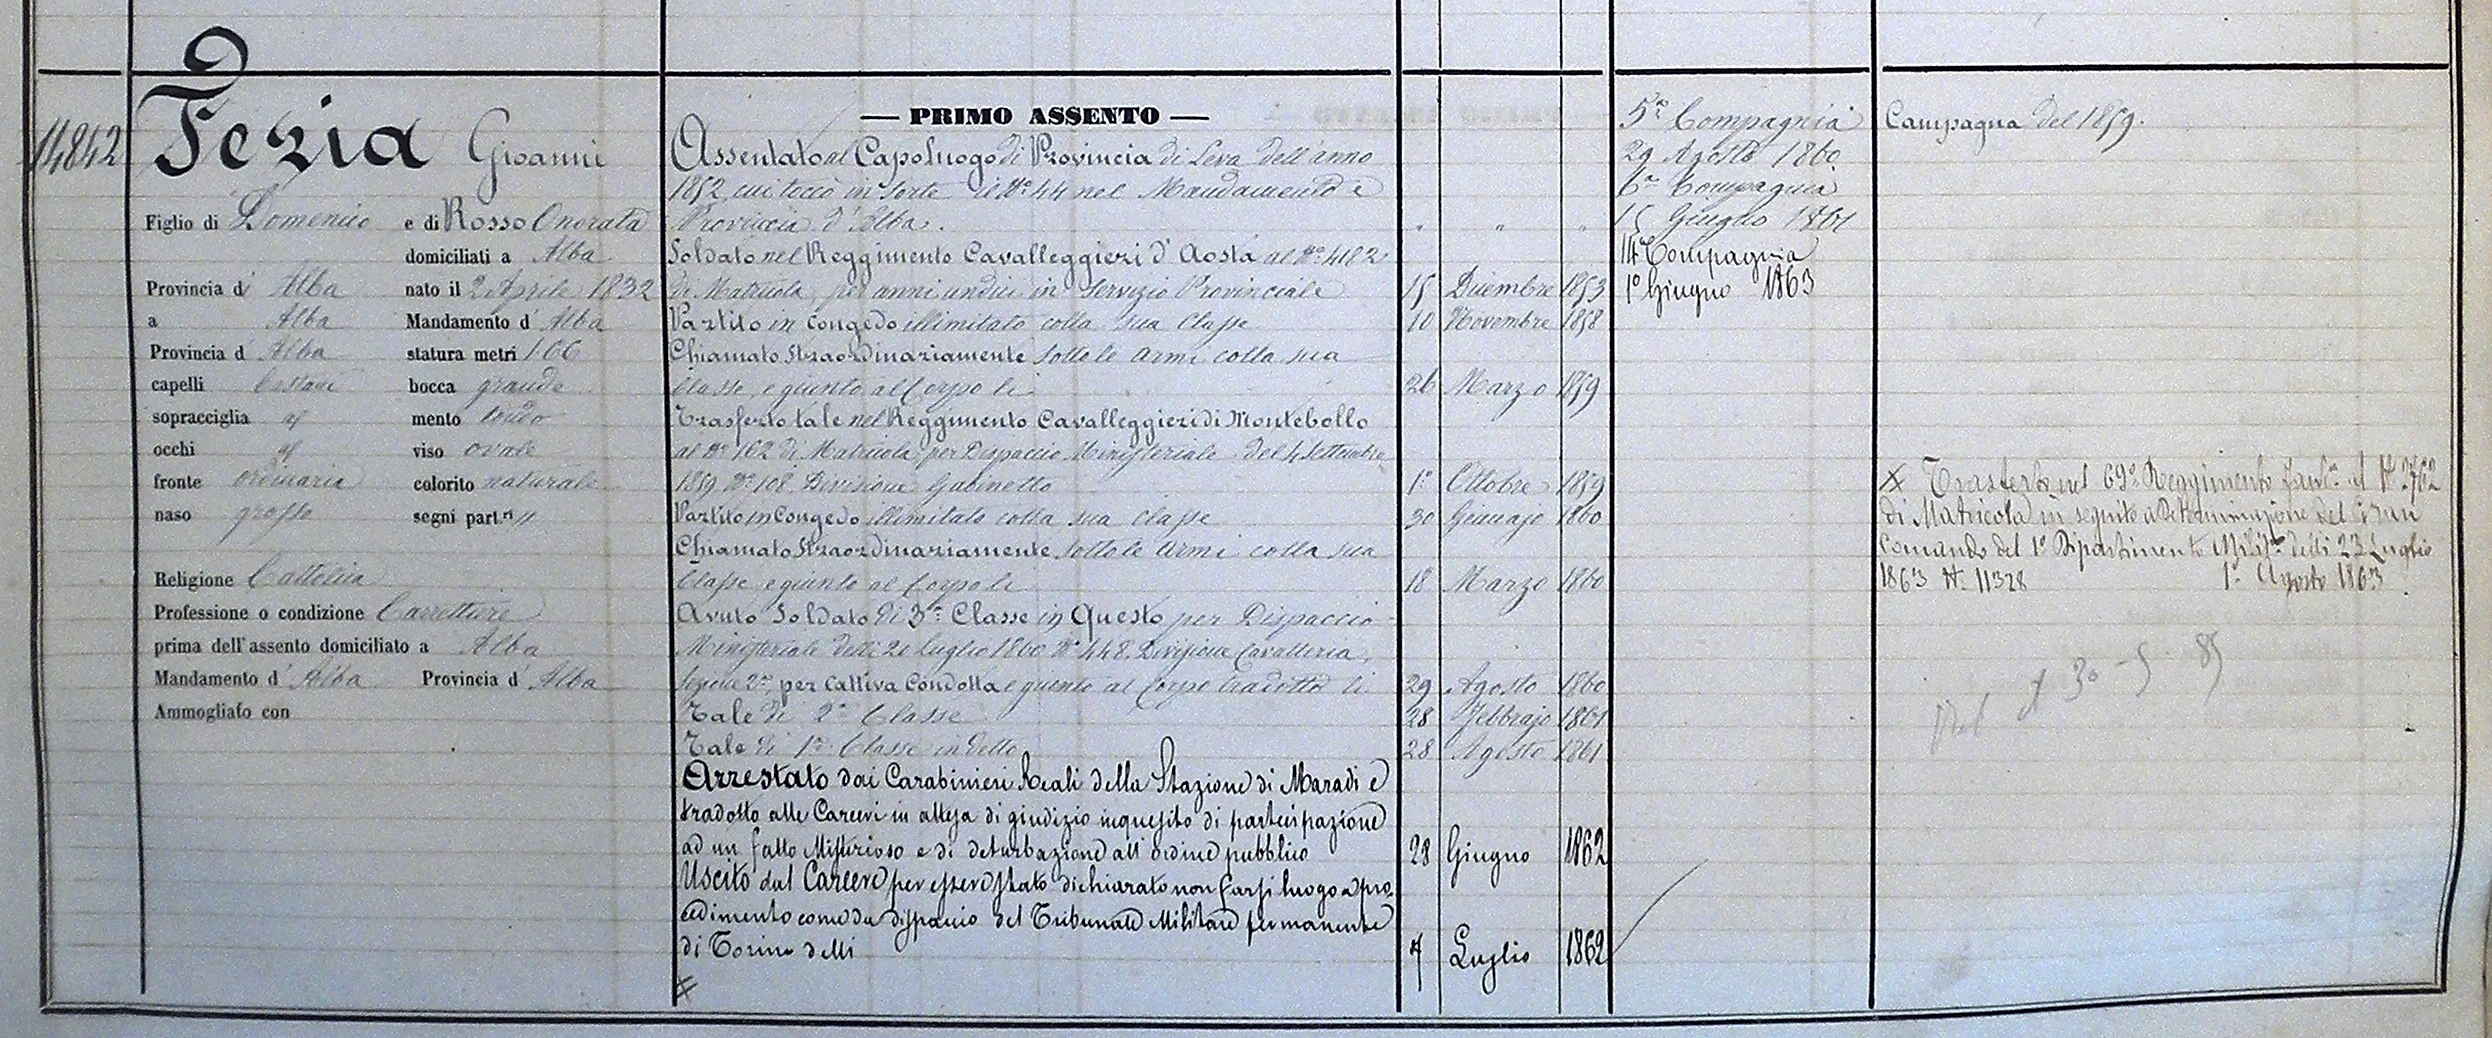 14842
Fezia Giovanni
Figlio di Domenico e di Rosso Onorata
domiciliati a Alba
Provincia d' Alba nato il 2 Aprile 1832
a Alba Mandamento d' Alba
Provincia d' Alba statura metri 1.66
capelli Castani bocca grande
sopracciglia af mento tondo
occhi af viso ovale
fronte ordinaria colorito naturale
naso grosso segni part.ri "
Religione Cattolica
Professione o condizione Carrettiere
prima dell'assento domiciliato a Alba
Mandamento d' Alba Provincia d' Alba
Ammogliato con
— PRIMO ASSENTO —
Assentato al Capoluogo di Provincia di Leva dell'anno
1852, cui toccò in sorte il N° 44 nel Mandamento e
Provincia d'Alba. " " "
Soldato nel Reggimento Cavalleggieri d'Aosta al N° 4182
di Matricola per anni undici in Servizio Provinciale 15 Dicembre 1853
Partito in Congedo illimitato colla sua Classe 10 Novembre 1858
Chiamato Straordinariamente sotto le armi colla sua
Classe, e giunto al Corpo li 26 Marzo 1859
Trasferto tale nel Reggimento Cavalleggieri di Montebello
al N° 162 di Matricola per Dispaccio Ministeriale del 4 Settembre
1859 N° 108 Divisione Gabinetto 1° Ottobre 1859
Partito in Congedo illimitato colla sua Classe 30 Gennajo 1860
Chiamato Straordinariamente sotto le armi colla sua
Classe e giunto al Corpo li 18 Marzo 1860
Avuto Soldato di 3a Classe in Questo per Dispaccio
Ministeriale delli 20 luglio 1860 N° 448 Divisione Cavalleria,
Sezione 2a, per Cattiva Condotta e giunto al Corpo tradotto li 29 Agosto 1860
Tale di 2a Classe 28 Febbrajo 1861
Tale di 1a Classe in detto 28 Agosto 1861
Arrestato dai Carabinieri Reali della Stazione di Maradi e
tradotto alle Carceri in attesa di giudizio inquisito di partecipazione
ad un fatto Misterioso e di deturbazione all'ordine pubblico 28 Giugno 1862
Uscito dal Carcere per essere stato dichiarato non farsi luogo a pro-
cedimento come da dispaccio del Tribunale Militare permanente
di Torino delli 7 Luglio 1862
X
5a Compagnia
29 Agosto 1860
6a Compagnia
15 Giugno 1861
14a Compagnia
1° Giugno 1863
Campagna del 1859.
X Trasferto nel 69° Reggimento fant.a al N° 2762
di Matricola in seguito a Determinazione del Gran
Comando del 1° Dipartimento Milit.re delli 23 Luglio
1863 N. 11328 1° Agosto 1863.
30 - 5 - 85